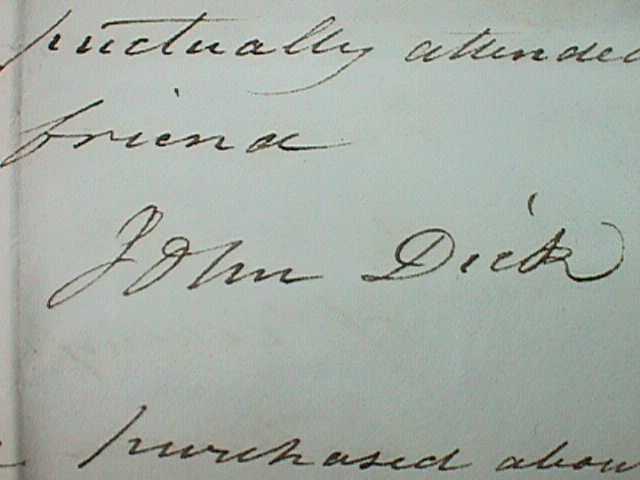 puctually attended
friend
John Dick
purchased abou